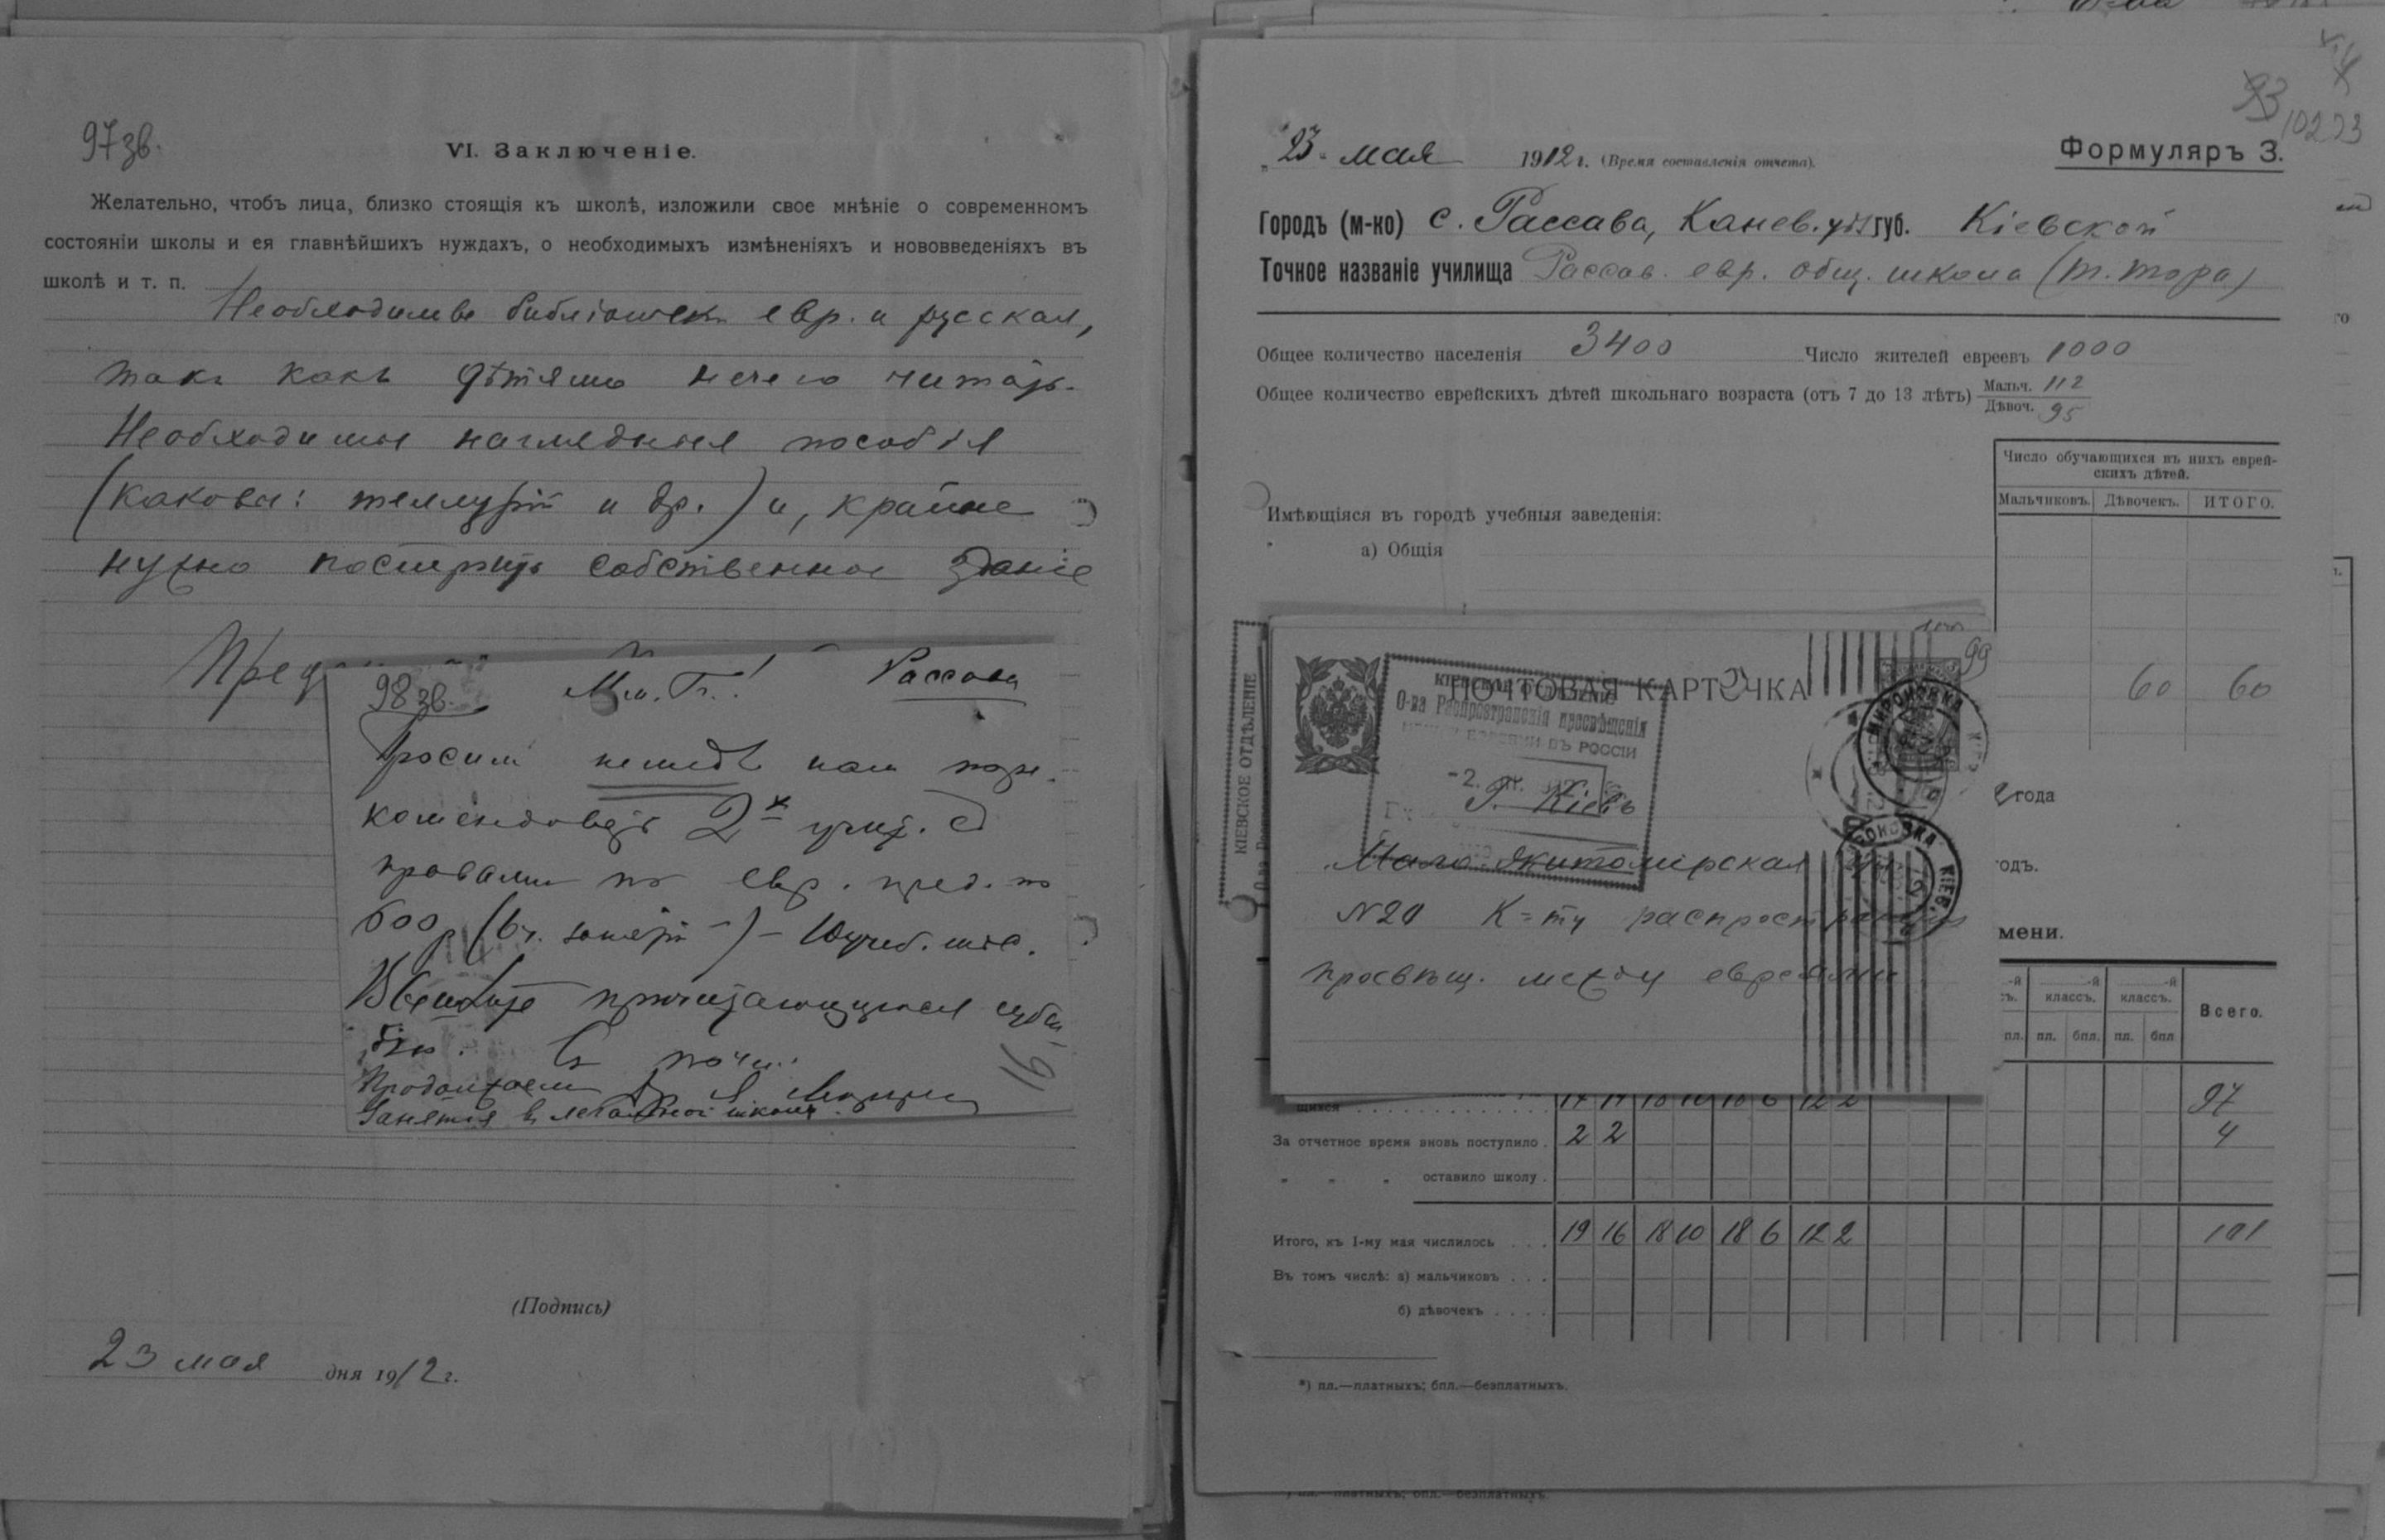 97 зв.
VI. Заключеніе.
Желательно, чтобъ лица, близко стоящія къ школѣ, изложили свое мнѣніе о современномъ
состояніи школы и ея главнѣйшихъ нуждахъ, о необходимыхъ измѣненіяхъ и нововведеніяхъ въ
школѣ и т. п.
евр. и русская,
такъ какъ дѣтямъ нечего читать.
Необходимы наглядныя пособія
(каковы: теллурій и др.) и, крайне
нужно построить собственное зданіе
Пред
98 зв. М. Г.! Россава
Просим немедл нам поре-
комендовать 2х учит. с
правами по евр. пред. по
600 р
причитающуюся субси
дію. С почт.
Продолжаем
Занятія в школѣ
16
(Подпись)
23 мая дня 1912 г.
93
102 23
„23" мая 1912 г. (Время составленія отчета).
Формуляръ 3.
Городъ (м-ко) с. Рассава, Канев. уѣз губ. Кіевской
Точное названіе училища Рассав. евр. общ. школа (т. тора)
Общее количество населенія 3400 Число жителей евреевъ 1000
Общее количество еврейскихъ дѣтей школьнаго возраста (отъ 7 до 13 лѣтъ) Мальч. 112
Дѣвоч. 95
Число обучающихся въ нихъ еврей-
скихъ дѣтей.
Мальчиковъ. Дѣвочекъ. ИТОГО.
Имѣющіяся въ городѣ учебныя заведенія:
а) Общія
60 60
КІЕВСКОЕ ОТДѢЛЕНІЕ
99
ПОЧТОВАЯ КАРТОЧКА
КІЕВСКОЕ ОТДѢЛЕНІЕ
О-ва Распространенія просвѣщенія
МЕЖДУ ЕВРЕЯМИ ВЪ РОССІИ
МИРОНОВКА
Г. Кіевъ
Мало-Житомірская
МИРОНОВКА КІЕВ.
N 20 К-ту распространен
просвѣщ. между евреями
года
одъ.
мени.
-й -й -й
съ. классъ. классъ. Всего.
пл. пл. бпл. пл. бпл
щихся 17 14 18 10 18 6 12 2 97
За отчетное время вновь поступило . 2 2 4
„ „ „ оставило школу .
Итого, къ 1-му мая числилось . . . 19 16 18 10 18 6 12 2 101
Въ томъ числѣ: а) мальчиковъ . . . .
б) дѣвочекъ . . . .
*) пл.—платныхъ; бпл.—безплатныхъ.
) пл.—платныхъ; бпл.—безплатныхъ.